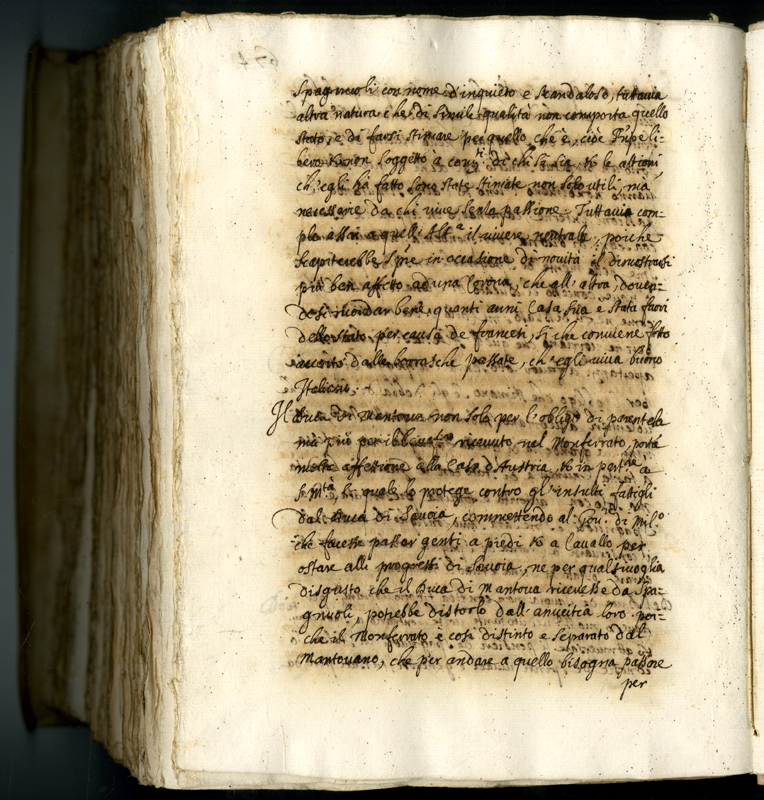 Spagnuoli con nome d'inquieto e scandaloso, tuttavia
altra natura che di simile qualità non comporta quello
stato, e di farsi stimare per quello che è, cioè Prnpe li-
bero e non soggetto à di chi si sia, et le attioni
ch'egli hà fatto sono state stimate non solo utili, mà
necessarie da chi vive senza passione. Tuttavia com-
ple assai a quell'Alt.a il vivere neutrale, poiche
scapiterebbe sp̄re in occasione di novità il dimostrarsi
più ben affetto ad una Corona, che all'altra, doven-
dosi ricordar bene quanti anni Casa sua è stata fuori
dello stato per causa de francesi, si che conviene fatto
accorto dalle borrasche passate, ch'egli viva buono
Italiano.
Il Duca di Mantova non solo per l'obligo di parentela
mà più per ricevuto nel Monferrato, porta
molta affettione alla Casa d'Austria, et in part.re a
S. M.tà la quale lo protege contro gl'insulti fattigli
dal Duca di Savoia, commettendo al Gov.r di Mil.o
che facesse passar genti a piedi et a Cavallo per
ostare alli progressi di Savoia, ne per qualsivoglia
disgusto che il Duca di Mantova ricevesse da Spa-
gnuoli, potrebbe distorlo dall'amicitia loro poi-
che il Monferrato e cosi distinto e separato dal
Mantovano, che per andare a quello bisogna passare
per